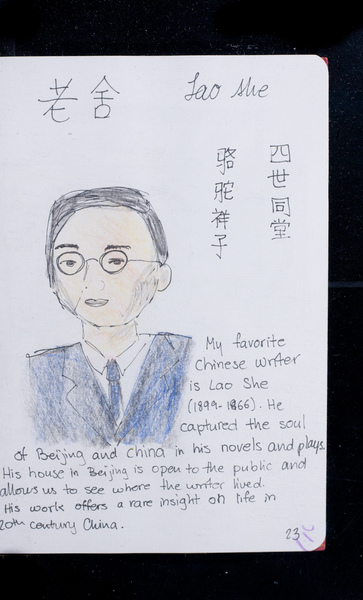 老舍 Lao She
四世同堂
骆驼祥子
My favorite
Chinese writer
is Lao She
(1899-1866). He
captured the soul
of Beijing and China in his novels and plays.
His house in Beijing is open to the public and
allows us to see where the writer lived.
His work offers a rare insight on life in
20th century China.
23